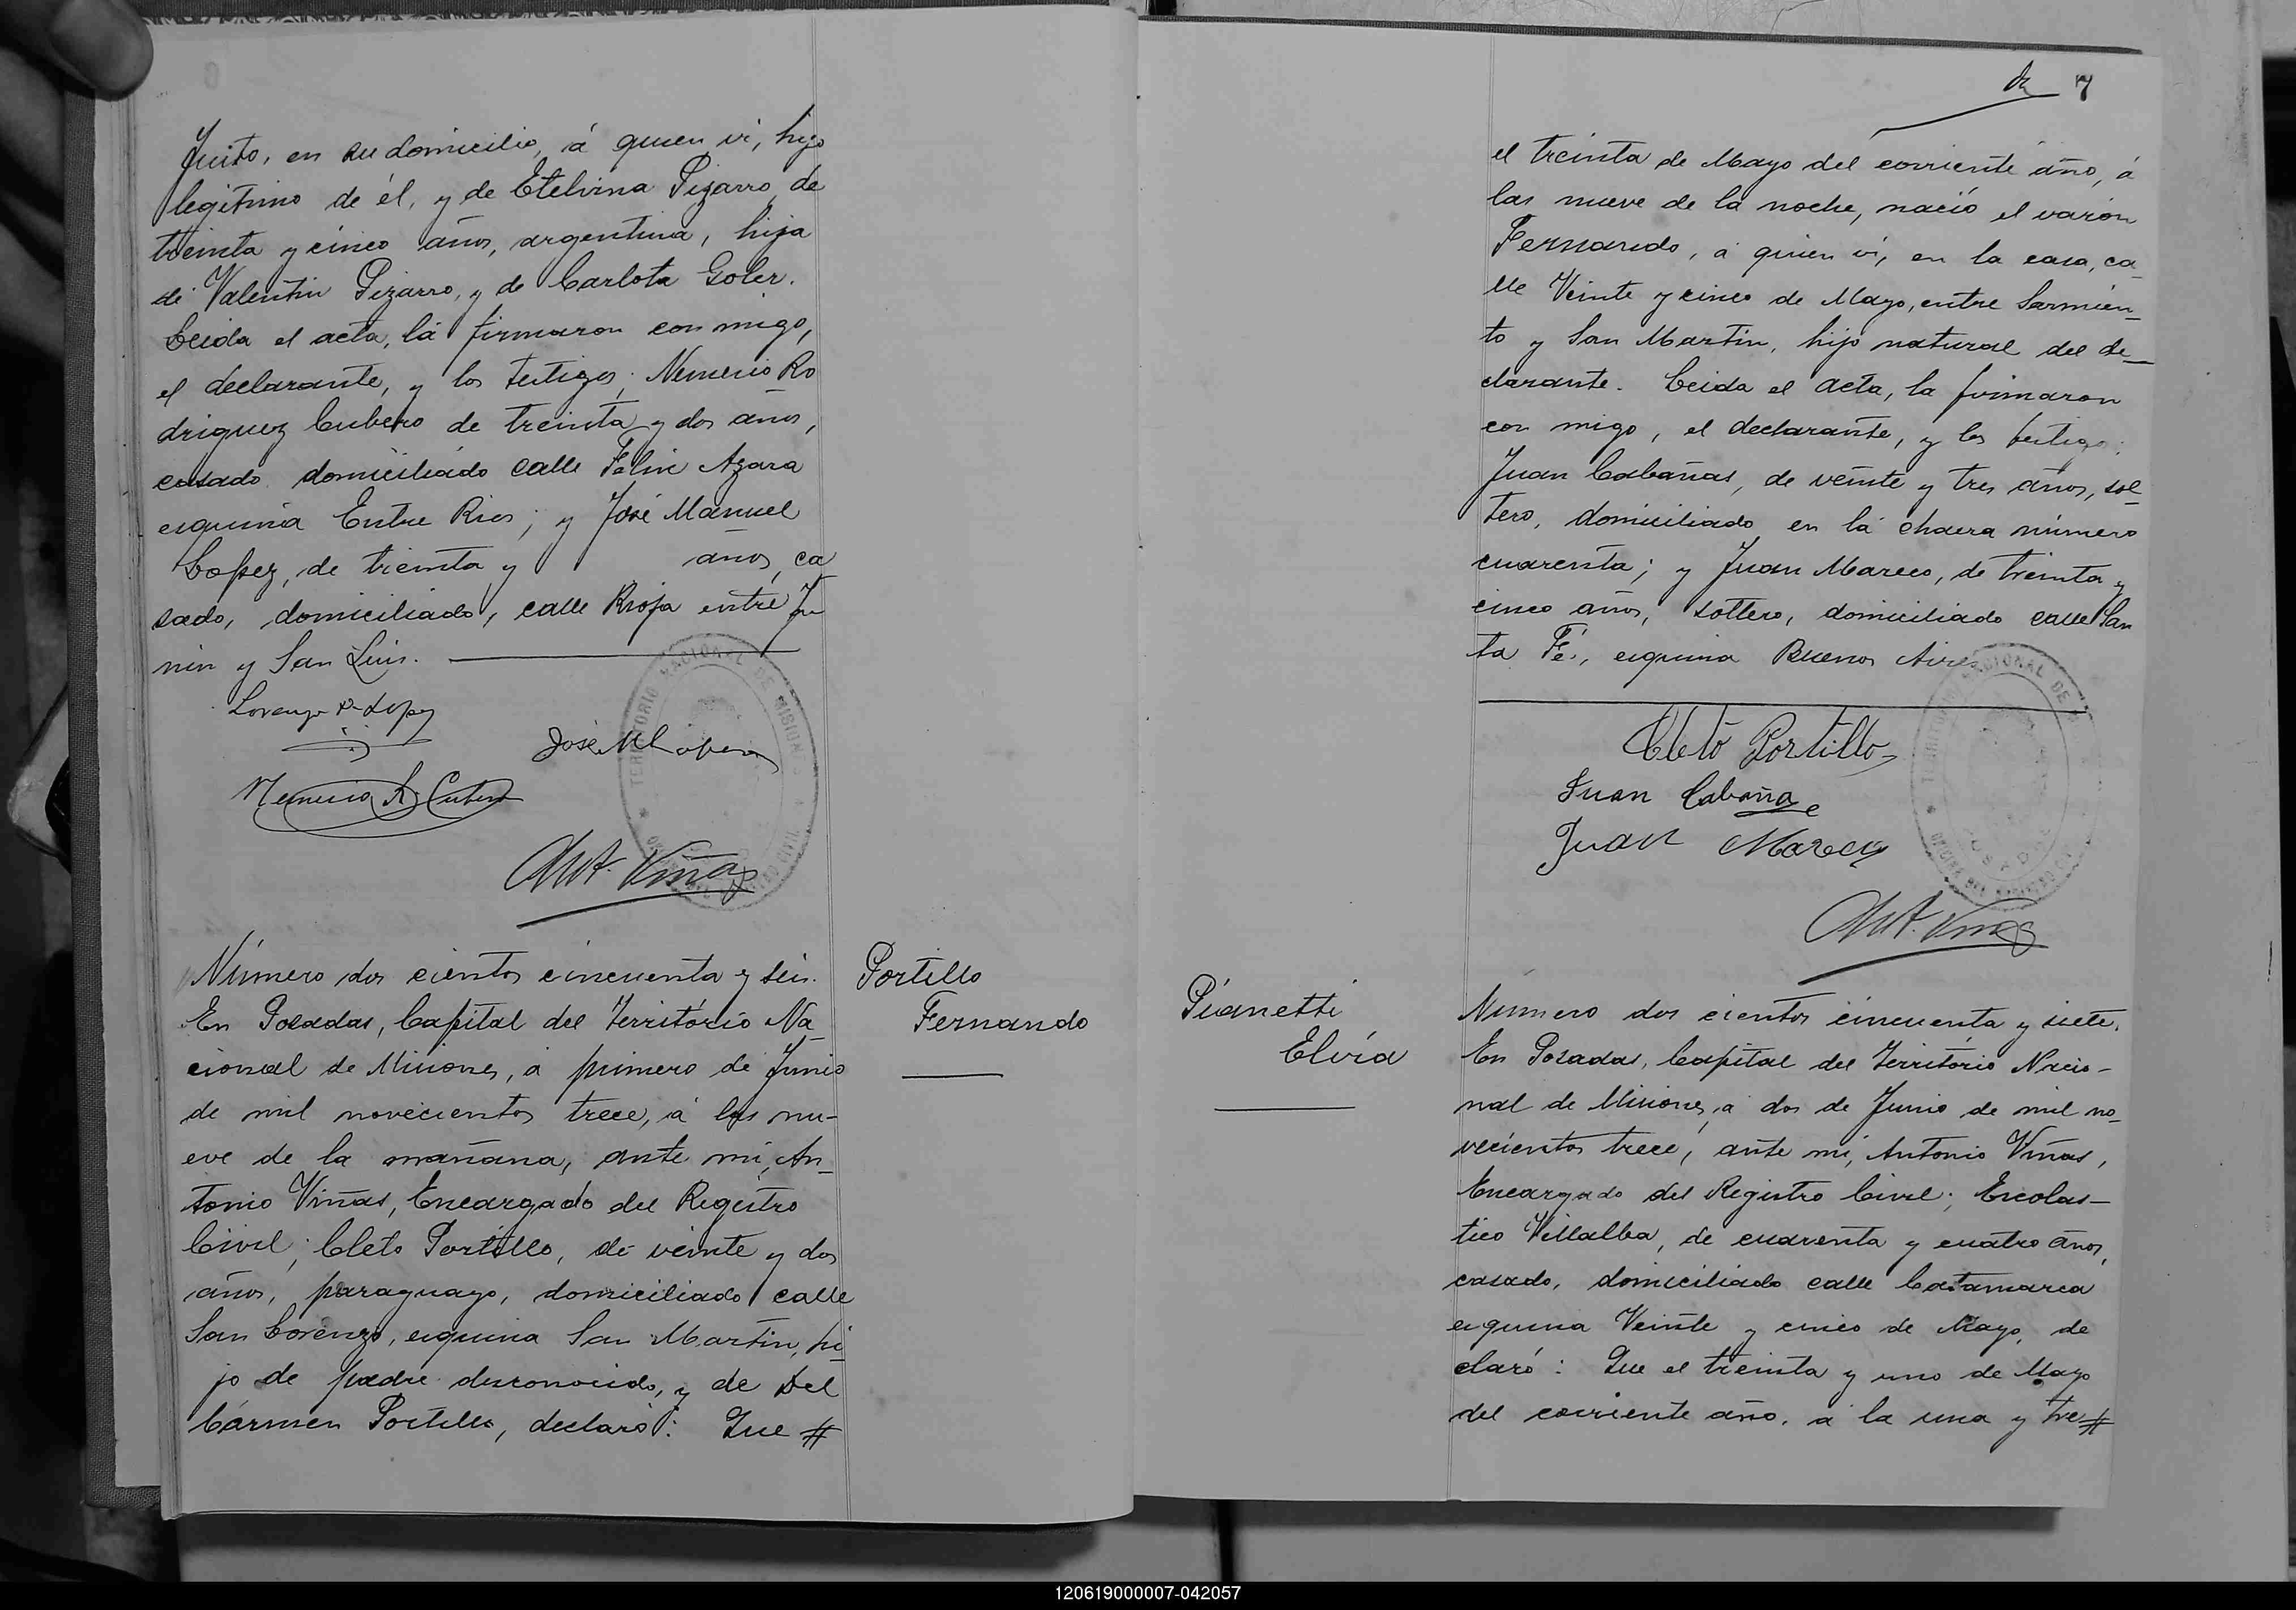 Juito, en su domicilio, á quien vi, hijo
legítimo de él, y de Etelvina Pizarro, de
treinta y cinco años, argentina, hija
de Valentin Pizarro, y de Carlota Goler.
Leida el acta, la firmaron con migo,
el declarante, y los testigos; Nemecio Ro
driguez Cubero de treinta y dos años,
casado, domiciliado calle Felix Azara
esquina Entre Rios; y José Manuel
Lopez, de treinta y años, ca
sado, domiciliado, calle Rioja entre Ju
nin y San Luis.
Lorenzo Lopez
José M Lopez
Nemecio R. Cubero
Ant. Viñas
TERRITORIO NACIONAL DE MISIONES
Número dos cientos cincuenta y seis.
En Posadas, Capital del Território Na
cional de Misiones, á primero de Junio
de mil novecientos trece, á las nu-
eve de la mañana, ante mi, An_
tonio Viñas, Encargado del Registro
Civil; Cleto Portillo, de veinte y dos
años, paraguayo, domiciliado calle
San Lorenzo, esquina San Martin, hi_
jo de padre desconocido, y de Del
Cármen Portillo, declaró: Que #
Portillo
Fernando
7
el treinta de Mayo del corriente año, á
las nueve de la noche, nació el varón
Fernando, á quien vi, en la casa, ca_
lle Veinte y cinco de Mayo, entre Sarmien_
to y San Martin, hijo natural del de_
clarante. Leida el acta, la firmaron
con migo, el declarante, y los testigos:
Juan Cabañas, de veinte y tres años, sol_
tero, domiciliado en la chacra número
cuarenta; y Juan Mareco, de treinta y
cinco años, soltero, domiciliado calle San
ta Fé, esquina Buenos Aires
Cleto Portillo
Juan Cabaña
Juan Mareco
Ant. Viñas
Pianetti
Elvía
Número dos cientos cincuenta y siete.
En Posadas, Capital del Território Nacio-
nal de Misiones, á dos de Junio de mil no_
vecientos trece, ante mi, Antonio Viñas,
Encargado del Registro Civil; Escolas-
tico Villalba, de cuarenta y cuatro años,
casado, domiciliado calle Catamarca
esquina Veinte y cinco de Mayo, de
claró: Que el treinta y uno de Mayo
del corriente año, á la una y tre#
120619000007-042057